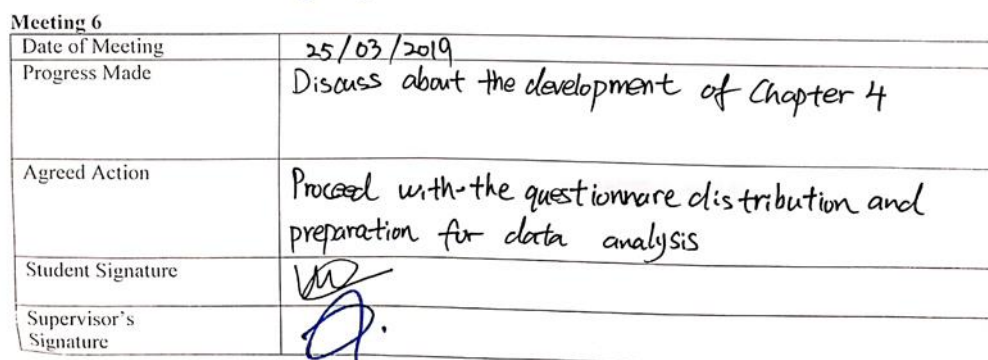 Meeting 6
Date of Meeting
25/03/2019
Progress Made
Discuss about the development of Chapter 4
Agreed Action
Proceed with the questionnare distribution and
preparation for data analysis
Student Signature
Supervisor's
Signature